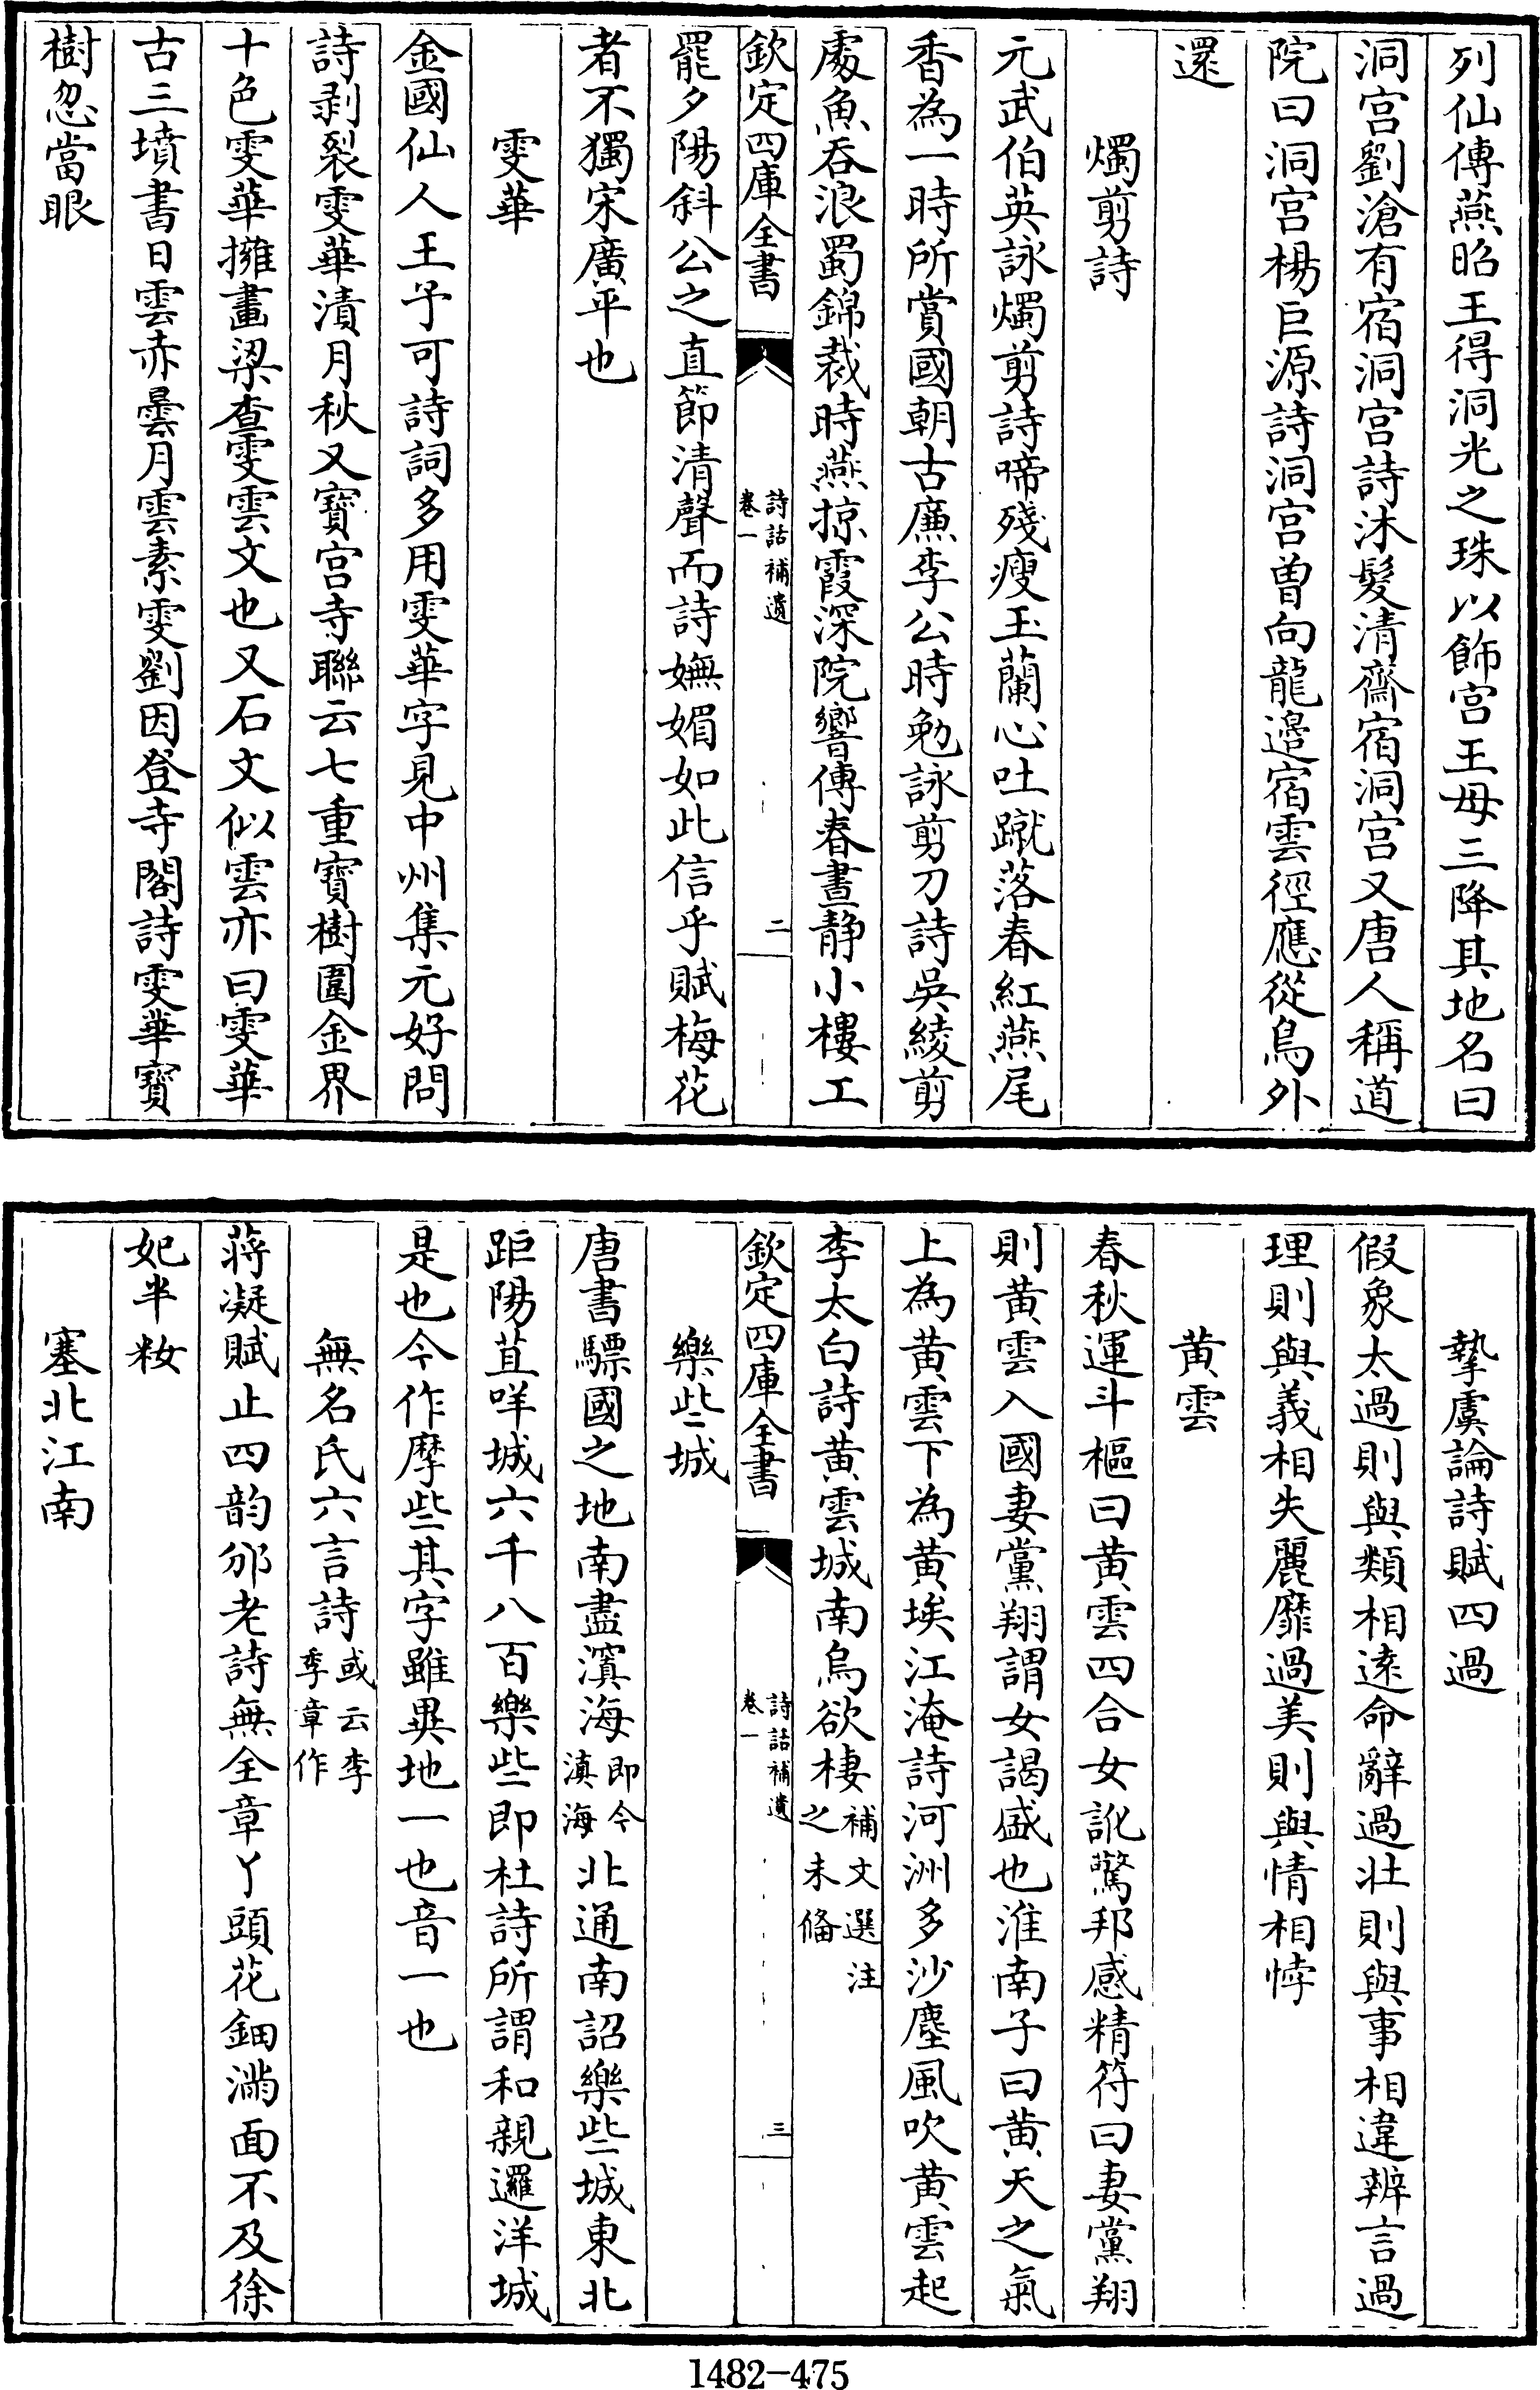 列仙傳燕昭王得洞光之珠以飾宫王母三降其地名曰
洞宫劉滄有宿洞宫詩沐髪清齋宿洞宫又唐人稱道
院曰洞宫楊巨源詩洞宫曽向龍邉宿雲徑應從鳥外
還
燭剪詩
元武伯英詠燭剪詩啼殘瘦玉蘭心吐蹴落春紅燕尾
香為一時所賞國朝古㢘李公時勉詠剪刀詩吳綾剪
處魚吞浪蜀錦裁時燕掠霞深院響傳春晝静小樓工
欽定四庫全書
詩話補遺
卷一
二
罷夕陽斜公之直節清聲而詩嫵媚如此信乎賦梅花
者不獨宋廣平也
雯華
金國仙人王予可詩詞多用雯華字見中州集元好問
詩剥裂雯華漬月秋又寳宫寺聯云七重寳樹圍金界
十色雯華擁畫梁查雯雲文也又石文似雲亦曰雯華
古三墳書日雲赤曇月雲素雯劉因登寺閣詩雯華寳
樹忽當眼
摯虞論詩賦四過
假象太過則與類相逺命辭過壮則與事相違辨言過
理則與義相失麗靡過美則與情相悖
黄雲
春秋運斗樞曰黄雲四合女訛驚邦感精符曰妻黨翔
則黄雲入國妻黨翔謂女謁盛也淮南子曰黄天之氣
上為黄雲下為黄埃江淹詩河洲多沙塵風吹黄雲起
李太白詩黄雲城南烏欲棲補文選注
之未偹
欽定四庫全書
詩話補遺
卷一
三
樂些城
唐書驃國之地南盡濵海即今
滇海北通南詔樂些城東北
距陽苴咩城六千八百樂些即杜詩所謂和親邏洋城
是也今作摩些其字雖異地一也音一也
無名氏六言詩或云李
季章作
蔣凝賦止四韵邠老詩無全章丫頭花鈿滿面不及徐
妃半粧
塞北江南
1482-475